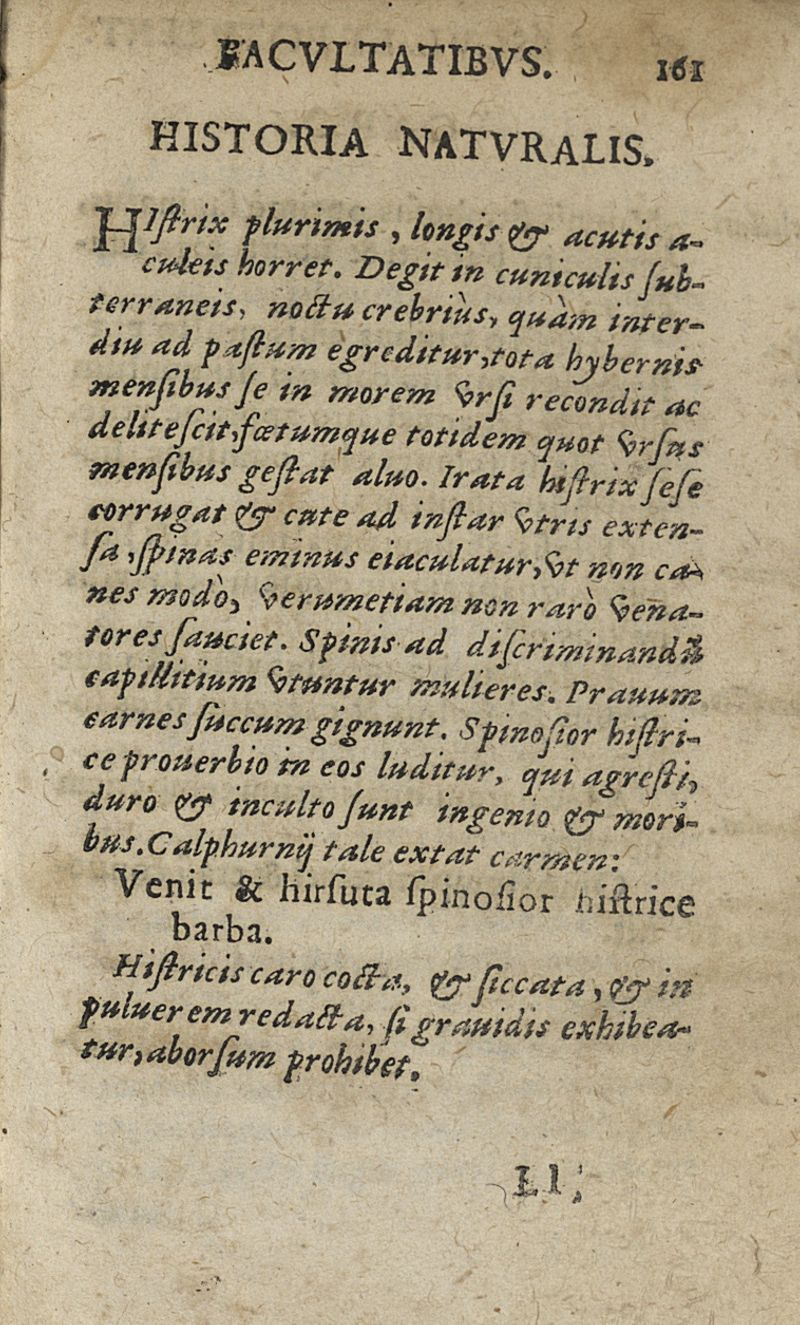 FACVLTATIBVS. 161
HISTORIA NATVRALIS.
HIſtrix plurimis, longis & acutis a-
culeis horret. Degit in cuniculis ſub-
terraneis, noctu crebriùs, quàm inter-
diu ad paſtum egreditur, tota hybernis
menſibus ſe in morem vrſi recondit ac
deliteſcit, fœtumque totidem quot vrſus
menſibus geſtat aluo. Irata hiſtrix ſeſe
corrugat & cute ad inſtar vtris exten-
ſa, ſpinas eminus eiaculatur, vt non ca-
nes modò, verumetiam non rarò vena-
tores ſauciet. Spinis ad diſcriminandũ
capillitium vtuntur mulieres. Prauum
carnes ſuccum gignunt. Spinoſior hiſtri-
ce prouerbio in eos luditur, qui agreſti,
duro & inculto ſunt ingenio & mori-
bus. Calphurnij tale extat carmen:
Venit & hirſuta ſpinoſior hiſtrice
barba.
Hiſtricis caro cocta, & ſiccata, & in
puluerem redacta, ſi grauidis exhibea-
tur, aborſum prohibet.